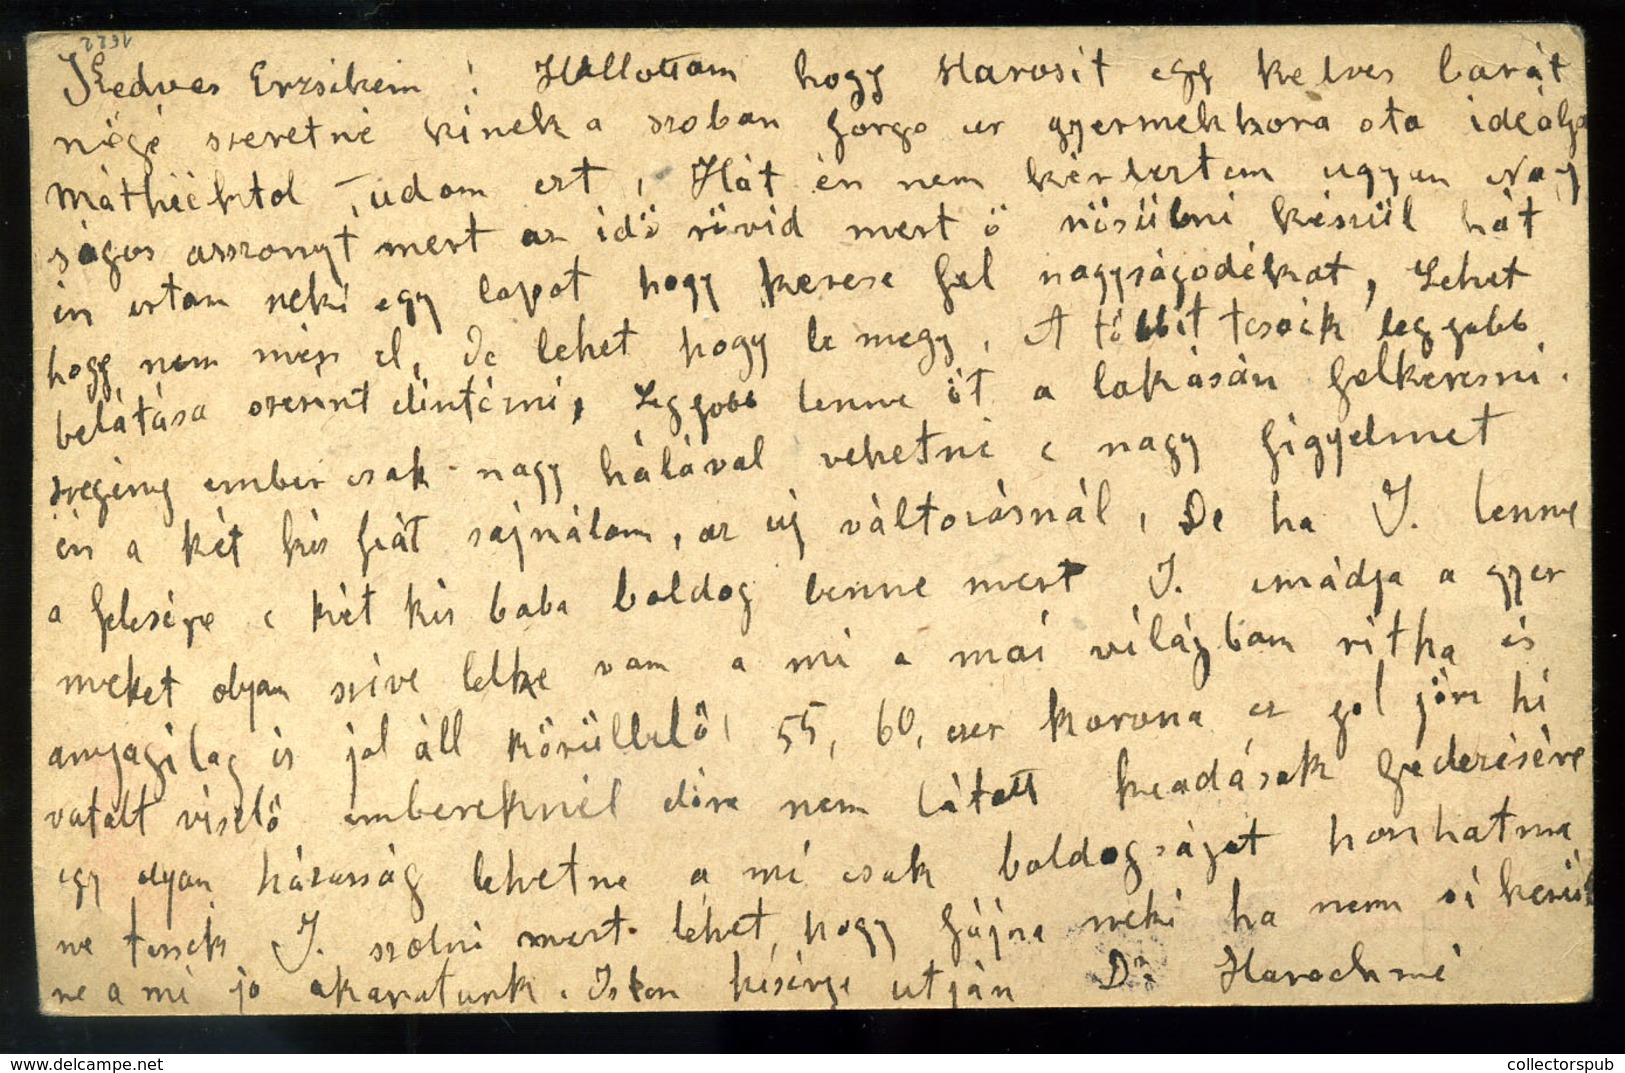 2291
Kedves Erzsikém! Hallottam hogy Marosit egy kedves barát
nőjé szeretné kinek a szoban forgo ur gyermekkora ota ideálja
Máthééktol tudom ezt, Hát én nem kérdeztem ugyan Nagy
ságos asszonyt mert az idő rövid mert ő nősülni készül hát
én irtam neki egy lapot hogy keresse fel nagyságodékat, Lehet
hogy nem mész el, de lehet hogy le megy, A többit tessék leg jobb
belátása szerint elintézni, Leg jobb lenne őt a lakásán felkeresni.
szegény ember csak nagy hálával vehetné e nagy figyelmet
én a két kis fiát sajnálom, az uj változásnál, De ha J. lenne
a felesége e két kis baba boldog lenne mert J. imádja a gyer
meket olyan szive lelke van a mi a mai világban ritka és
anyagilag is jol áll körüllelő 55, 60, ezer korona ez jol jön hi
vatalt viselő embereknél elöre nem látott kiadások fedezésére
egy olyan házasság lehetne a mi csak boldogságot hozhatna
ne tessék J. szolni mert lehet, hogy fájna neki ha nem si kerül
ne a mi jó akaratunk. Isten kisérje utján Dr
delcampe.net
collectorspub